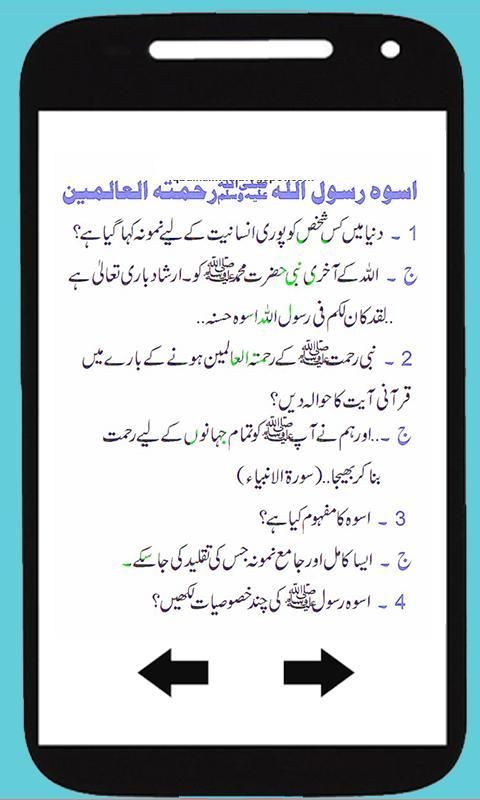 اسوہ رسول اللہ ﷺ رحمتہ العالمین
1 ۔ دنیا میں کس شخص کو پوری انسانیت کے لیے نمونہ کہا گیا ہے؟
ج ۔ اللہ کے آخری نبی حضرت محمد ﷺ کو۔ ارشاد باری تعالیٰ ہے
..لقد کان لکم فی رسول اللہ اسوہ حسنہ..
2 ۔ نبی رحمت ﷺ کے رحمتہ العالمین ہونے کے بارے میں
قرآنی آیت کا حوالہ دیں؟
ج ۔..اور ہم نے آپ ﷺ کو تمام جہانوں کے لیے رحمت
بنا کر بھیجا..(سورۃ الانبیاء)
3 ۔ اسوہ کا مفہوم کیا ہے؟
ج ۔ ایسا کامل اور جامع نمونہ جس کی تقلید کی جا سکے۔
4 ۔ اسوہ رسول ﷺ کی چند خصوصیات لکھیں؟